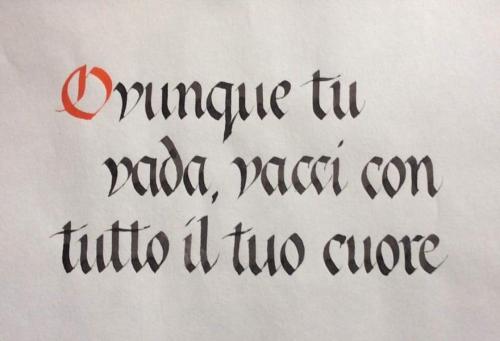 Ovunque tu
vada, vacci con
tutto il tuo cuore